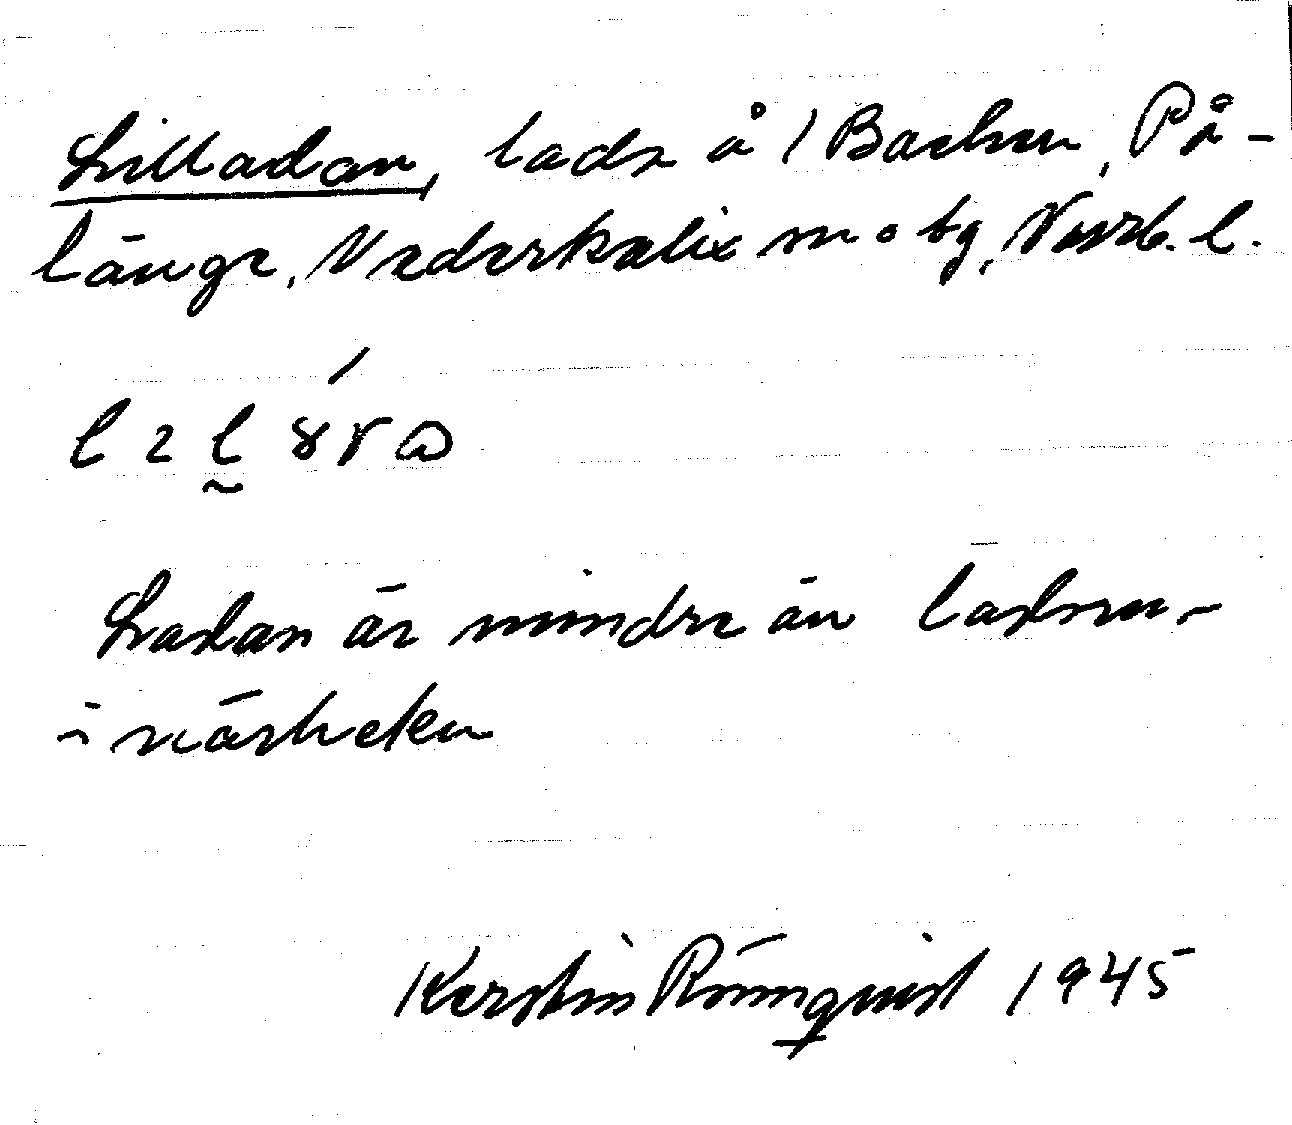 Lilladan, lada å 1 Backen, På-
länge, Nederkalix sn o tg, Norrb. l.
Ladan är mindre än ladorna
i närheten
Kerstin Rönnquist 1945